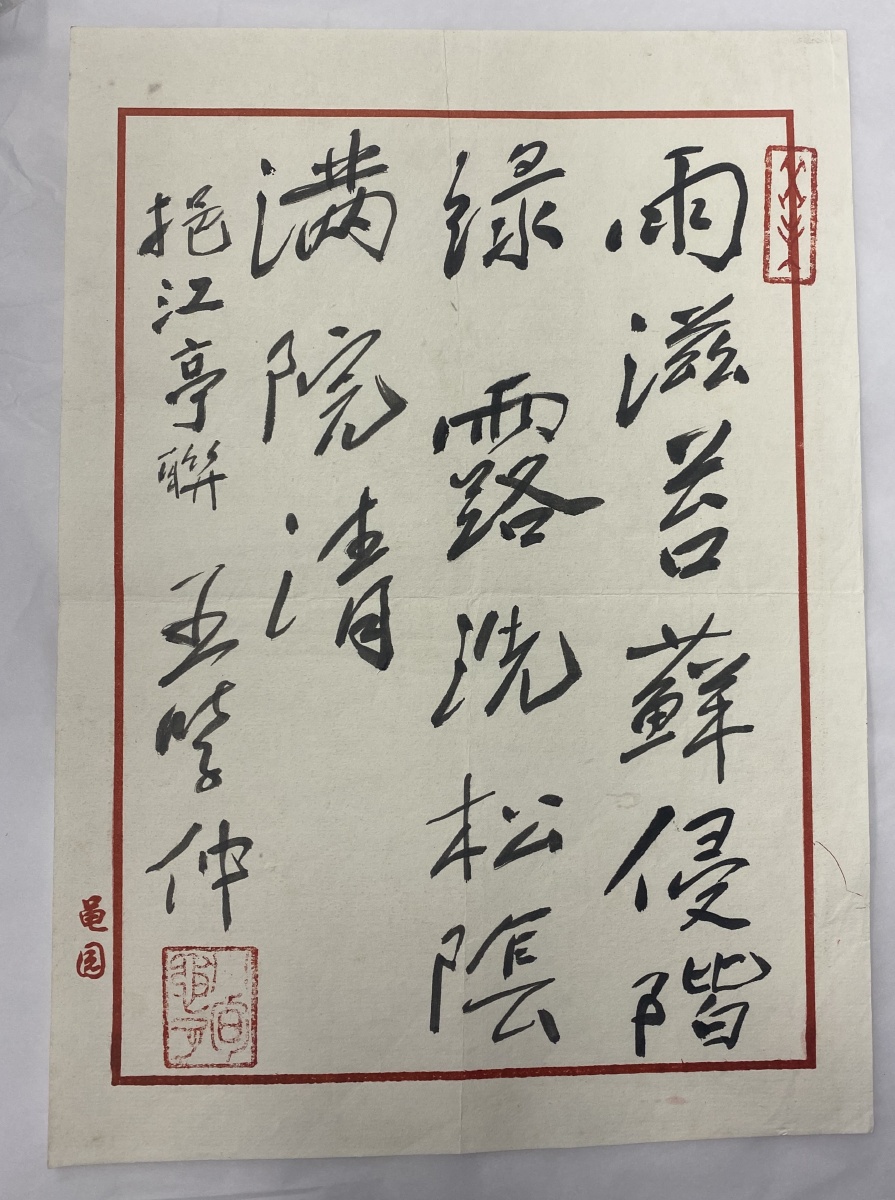 雨滋苔蘚侵階
绿 露洗松陰
满院清
挹江亭聯 王學仲
黾园